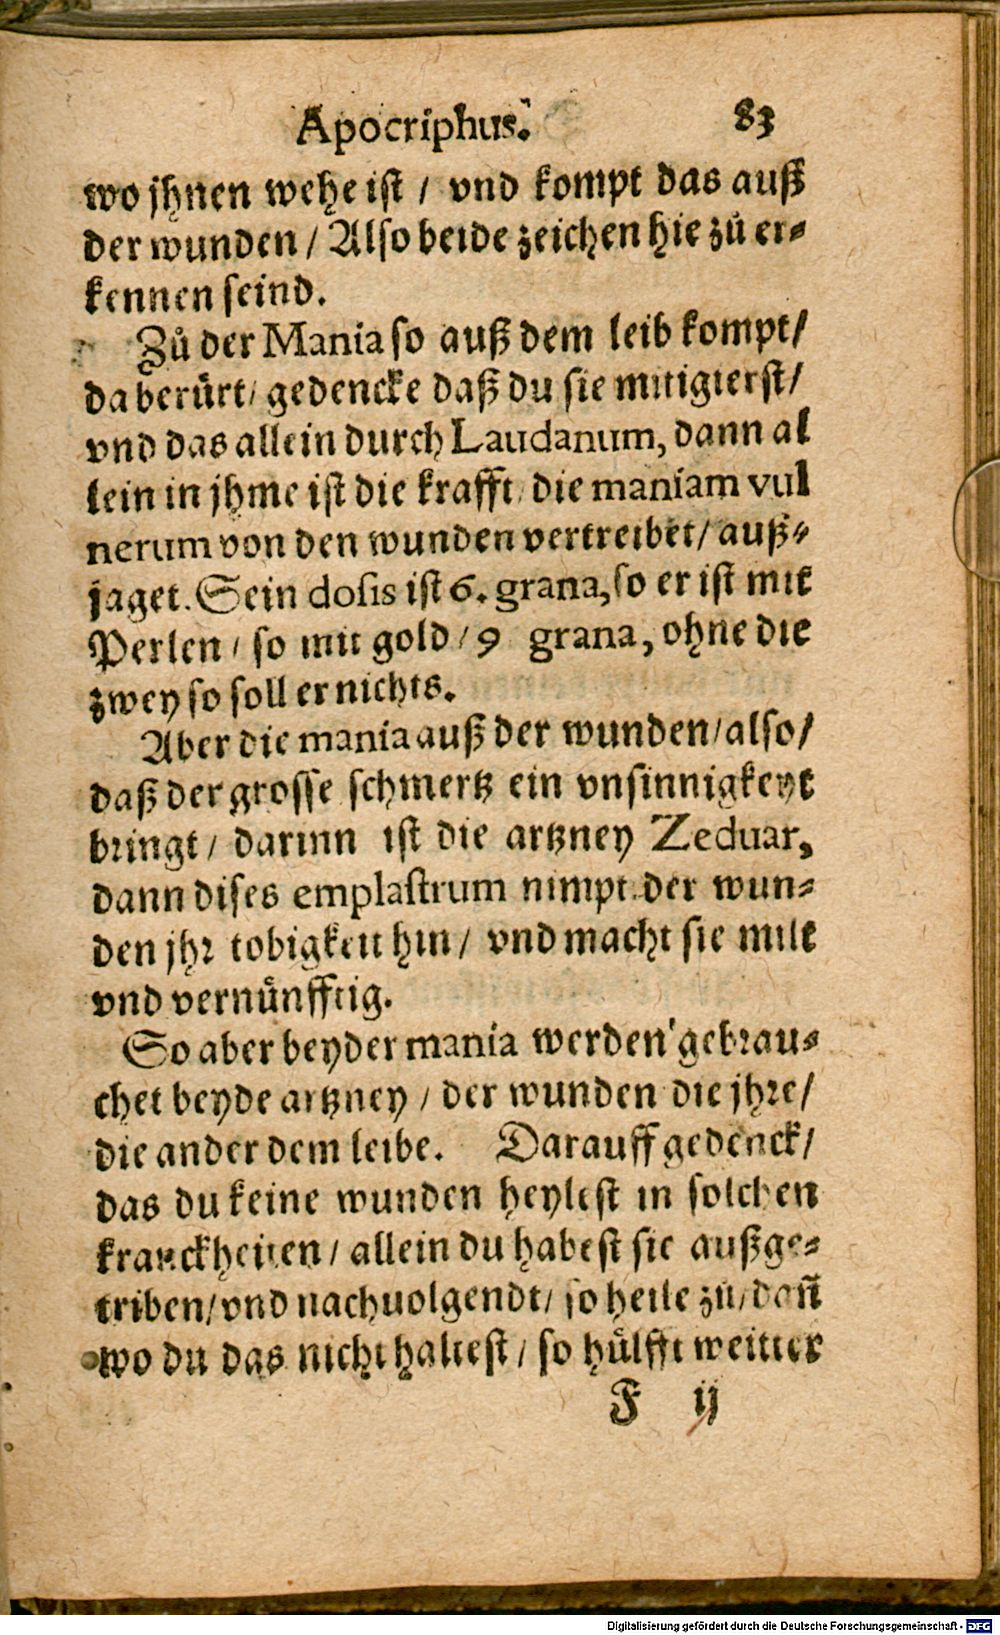 Apocriphus. 83
wo jhnen wehe ist / vnd kompt das auß
der wunden / Also beide zeichen hie zů er-
kennen seind.
Zů der Mania so auß dem leib kompt/
da berürt/ gedencke daß du sie mitigierst/
vnd das allein durch Laudanum, dann al
lein in jhme ist die krafft/ die maniam vul
nerum von den wunden vertreibet/ auß-
jaget. Sein dosis ist 6. grana, so er ist mit
Perlen / so mit gold / 9 grana, ohne die
zwey so soll er nichts.
Aber die mania auß der wunden/also/
daß der grosse schmertz ein vnsinnigkeyt
bringt / darinn ist die artzney Zeduar,
dann dises emplastrum nimpt der wun-
den jhr tobigkeit hin / vnd macht sie milt
vnd vernünfftig.
So aber beyder mania werden gebrau-
chet beyde artzney / der wunden die jhre/
die ander dem leibe. Darauff gedenck/
das du keine wunden heylest in solchen
kranckheiten / allein du habest sie außge-
triben/vnd nachuolgendt/ so heile zů/dañ
wo du das nicht haltest / so hülfft weitter
F ij
Digitalisierung gefördert durch die Deutsche Forschungsgemeinschaft - DFG